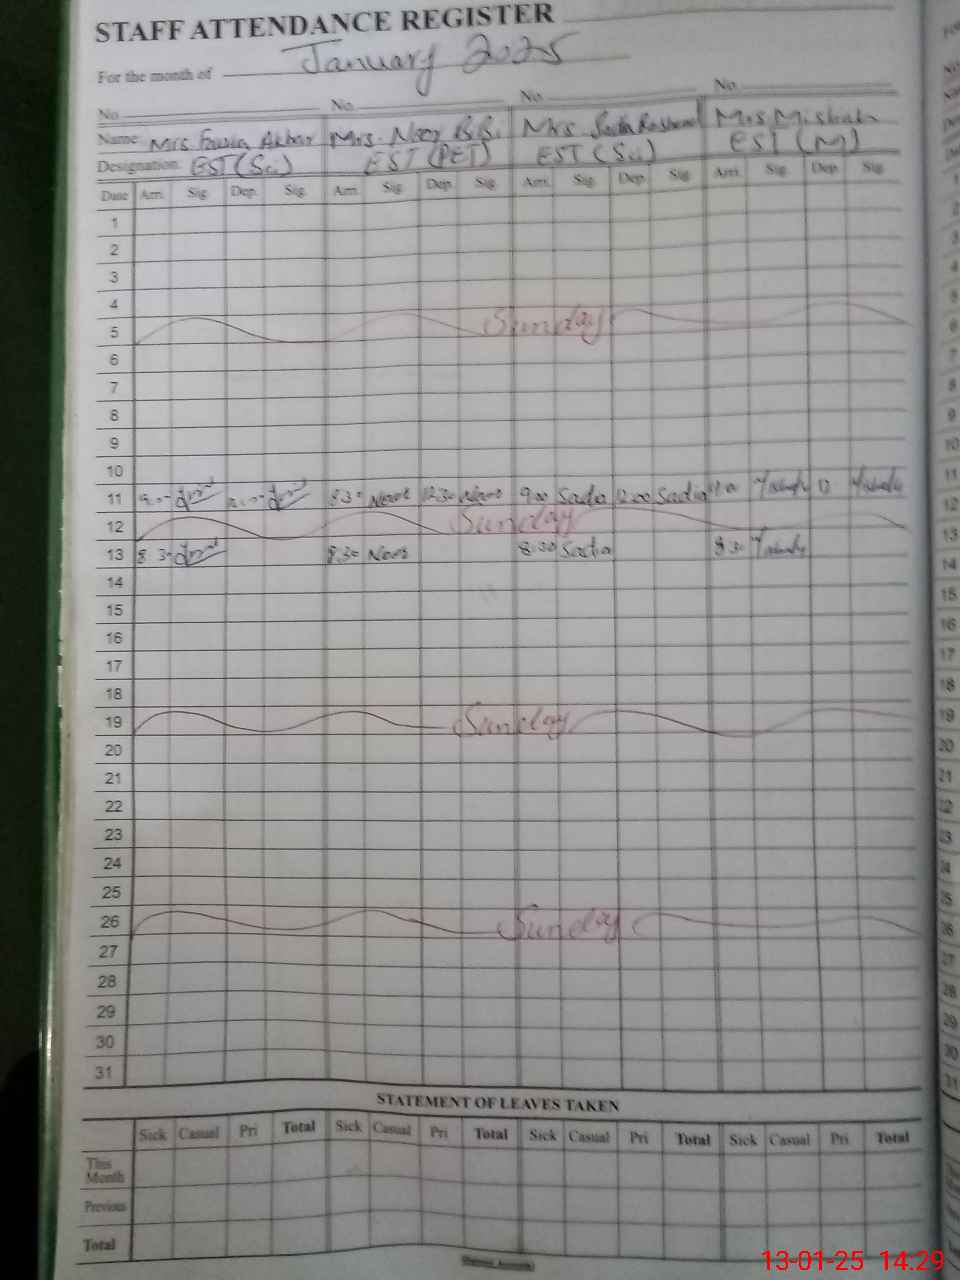 STAFF ATTENDANCE REGISTER
For the month of January 2025
No. No. No. No.
Name: Mrs Fouzia Akbar Mrs. Noor B.B. Mrs Sadia Mrs Misbah
Designation: EST (Sci) EST (PET) EST (Sci) EST (M)
Date Arri. Sig. Dep. Sig. Arri. Sig. Dep. Sig. Arri. Sig. Dep. Sig. Arri. Sig. Dep. Sig.
1
2
3
4
5 Sunday
6
7
8
9
10
11 8:30 Noor 12:30 Noor 9:00 Sadia 12:00 Sadia
12 Sunday
13 8:30 8:30 Noor 8:30 Sadia 8:30
14
15
16
17
18
19 Sunday
20
21
22
23
24
25
26 Sunday
27
28
29
30
31
STATEMENT OF LEAVES TAKEN
Sick Casual Pri Total Sick Casual Pri Total Sick Casual Pri Total Sick Casual Pri Total
This Month
Previous
Total
13-01-25 14:29